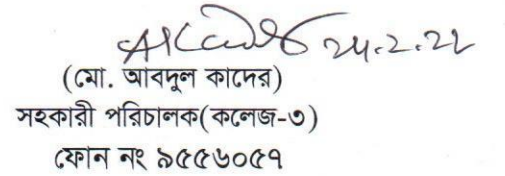 ২৮.২.২২
(মো. আবদুল কাদের)
সহকারী পরিচালক(কলেজ-৩)
ফোন নং ৯৫৫৬০৫৭